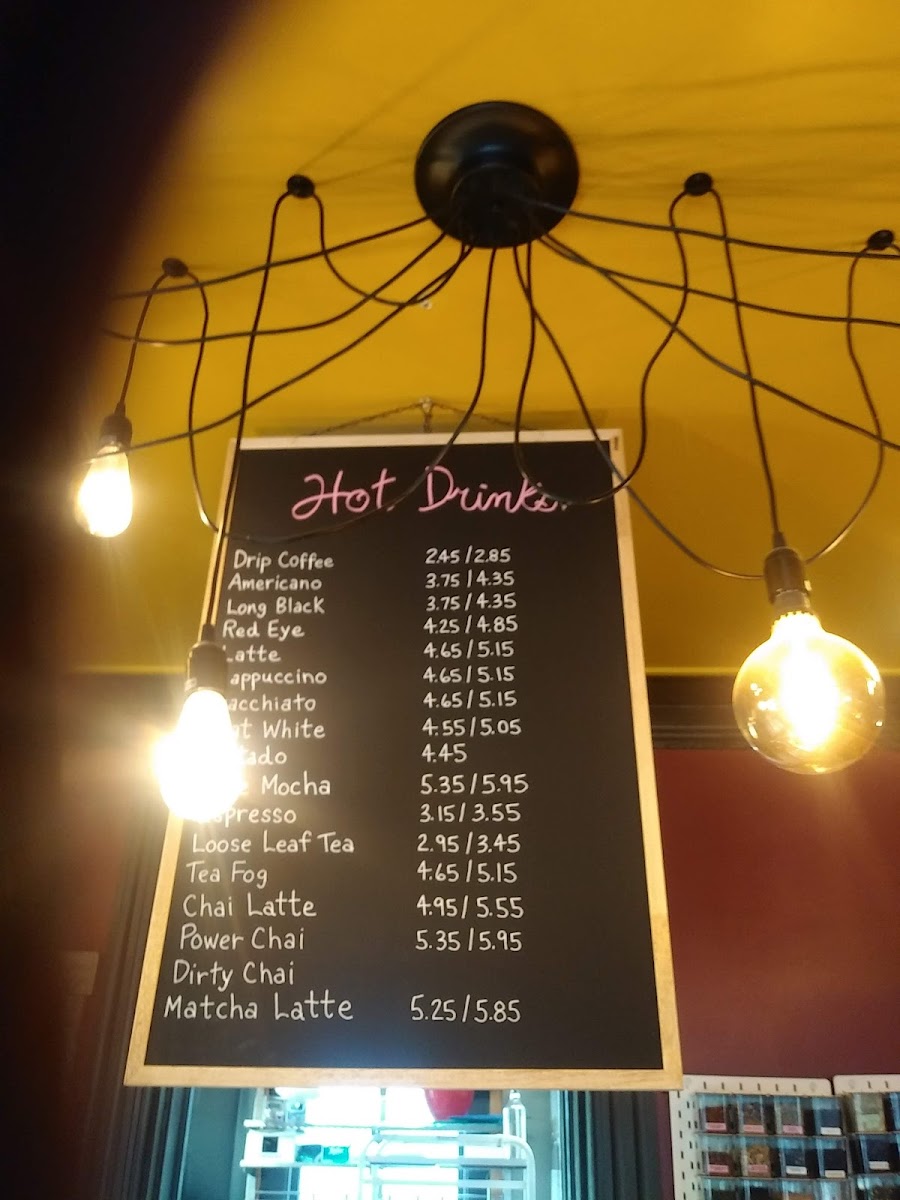 Hot Drinks
Drip Coffee 2.45 / 2.85
Americano 3.75 / 4.35
Long Black 3.75 / 4.35
Red Eye 4.25 / 4.85
Latte 4.65 / 5.15
appuccino 4.65 / 5.15
acchiato 4.65 / 5.15
White 4.55 / 5.05
4.45
Mocha 5.35 / 5.95
Espresso 3.15 / 3.55
Loose Leaf Tea 2.95 / 3.45
Tea Fog 4.65 / 5.15
Chai Latte 4.95 / 5.55
Power Chai 5.35 / 5.95
Dirty Chai
Matcha Latte 5.25 / 5.85